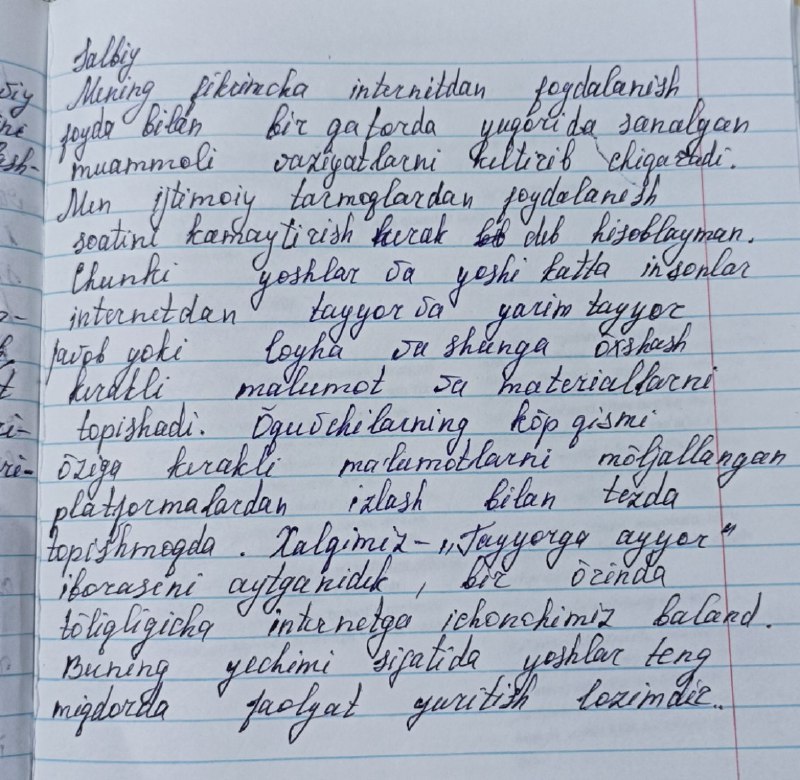 Salbiy
Mening fikrimcha internitdan foydalanish
foyda bilan bir qatorda yuqorida sanalgan
muammoli vaziyatlarni keltirib chiqaradi.
Men ijtimoiy tarmoqlardan foydalanish
soatini kamaytirish kerak deb hisoblayman.
Chunki yoshlar va yoshi katta insonlar
internetdan tayyor va yarim tayyor
javob yoki loyha va shunga öxshash
kerakli malumot va materiallarni
topishadi. Öquvchilarning köp qismi
öziga kerakli ma'lumotlarni möljallangan
platformalardan izlash bilan tezda
topishmoqda. Xalqimiz - „Tayyorga ayyor"
iborasini aytganidek, bir örinda
töliqligicha internetga ichonchimiz baland.
Buning yechimi sifatida yoshlar teng
miqdorda faolyat yuritish lozimdir..